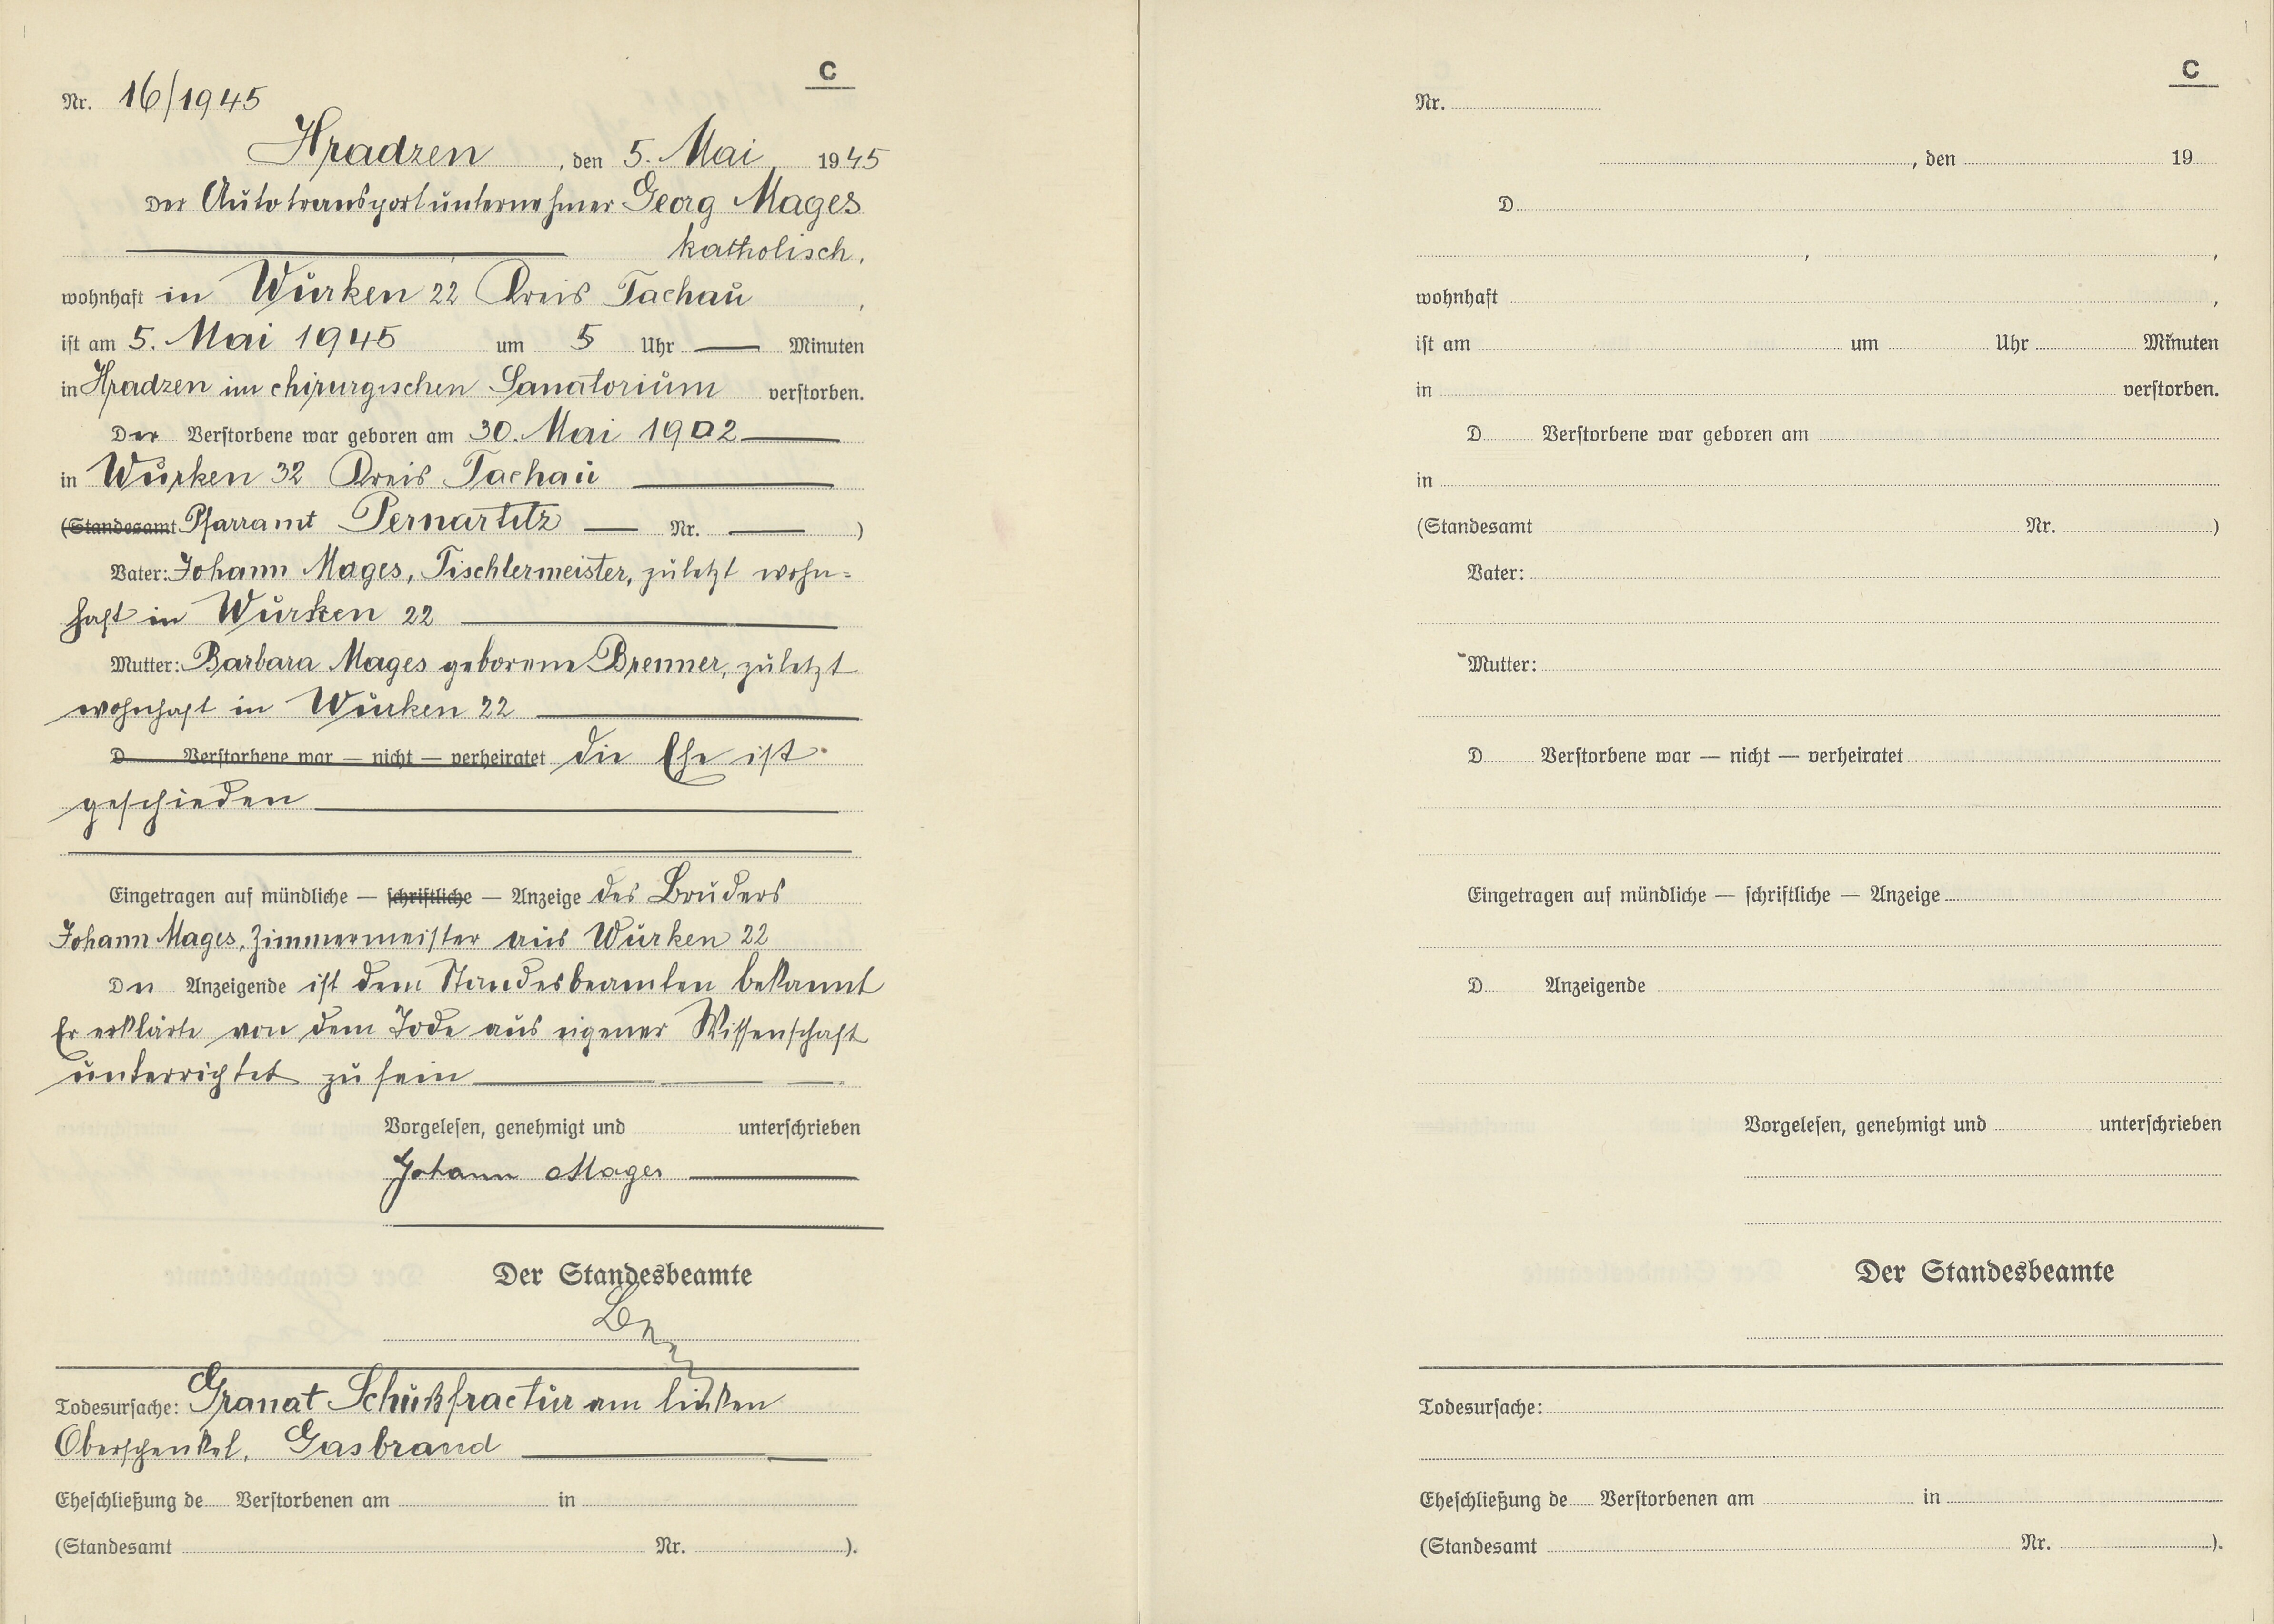 C
Nr. 16/1945
Hradzen, den 5. Mai 1945
Der Autotransportunternehmer Georg Mages
katholisch,
wohnhaft in Wurken 22 Kreis Tachau,
ist am 5. Mai 1945 um 5 Uhr — Minuten
in Hradzen im chirurgischen Sanatorium verstorben.
Der Verstorbene war geboren am 30. Mai 1902
in Wurken 32 Kreis Tachau
(Standesamt Pfarramt Pernartitz — Nr. — )
Vater: Johann Mages, Tischlermeister, zuletzt wohn=
haft in Wurken 22
Mutter: Barbara Mages geborene Brenner, zuletzt
wohnhaft in Wurken 22
D Verstorbene war — nicht — verheiratet die Ehe ist
geschieden
Eingetragen auf mündliche — schriftliche — Anzeige des Bruders
Johann Mages, Zimmermeister aus Wurken 22
Der Anzeigende ist dem Standesbeamten bekannt
Er erklärte von dem Tode aus eigener Wissenschaft
unterrichtet zu sein
Vorgelesen, genehmigt und unterschrieben
Johann Mages
Der Standesbeamte
Todesursache: Granat-Schußfractur am linken
Oberschenkel, Gasbrand
Eheschließung de Verstorbenen am in
(Standesamt Nr. ).
C
Nr.
, den 19
D
, ,
wohnhaft ,
ist am um Uhr Minuten
in verstorben.
D Verstorbene war geboren am
in
(Standesamt Nr. )
Vater:
Mutter:
D Verstorbene war — nicht — verheiratet
Eingetragen auf mündliche — schriftliche — Anzeige
D Anzeigende
Vorgelesen, genehmigt und unterschrieben
Der Standesbeamte
Todesursache:
Eheschließung de Verstorbenen am in
(Standesamt Nr. ).